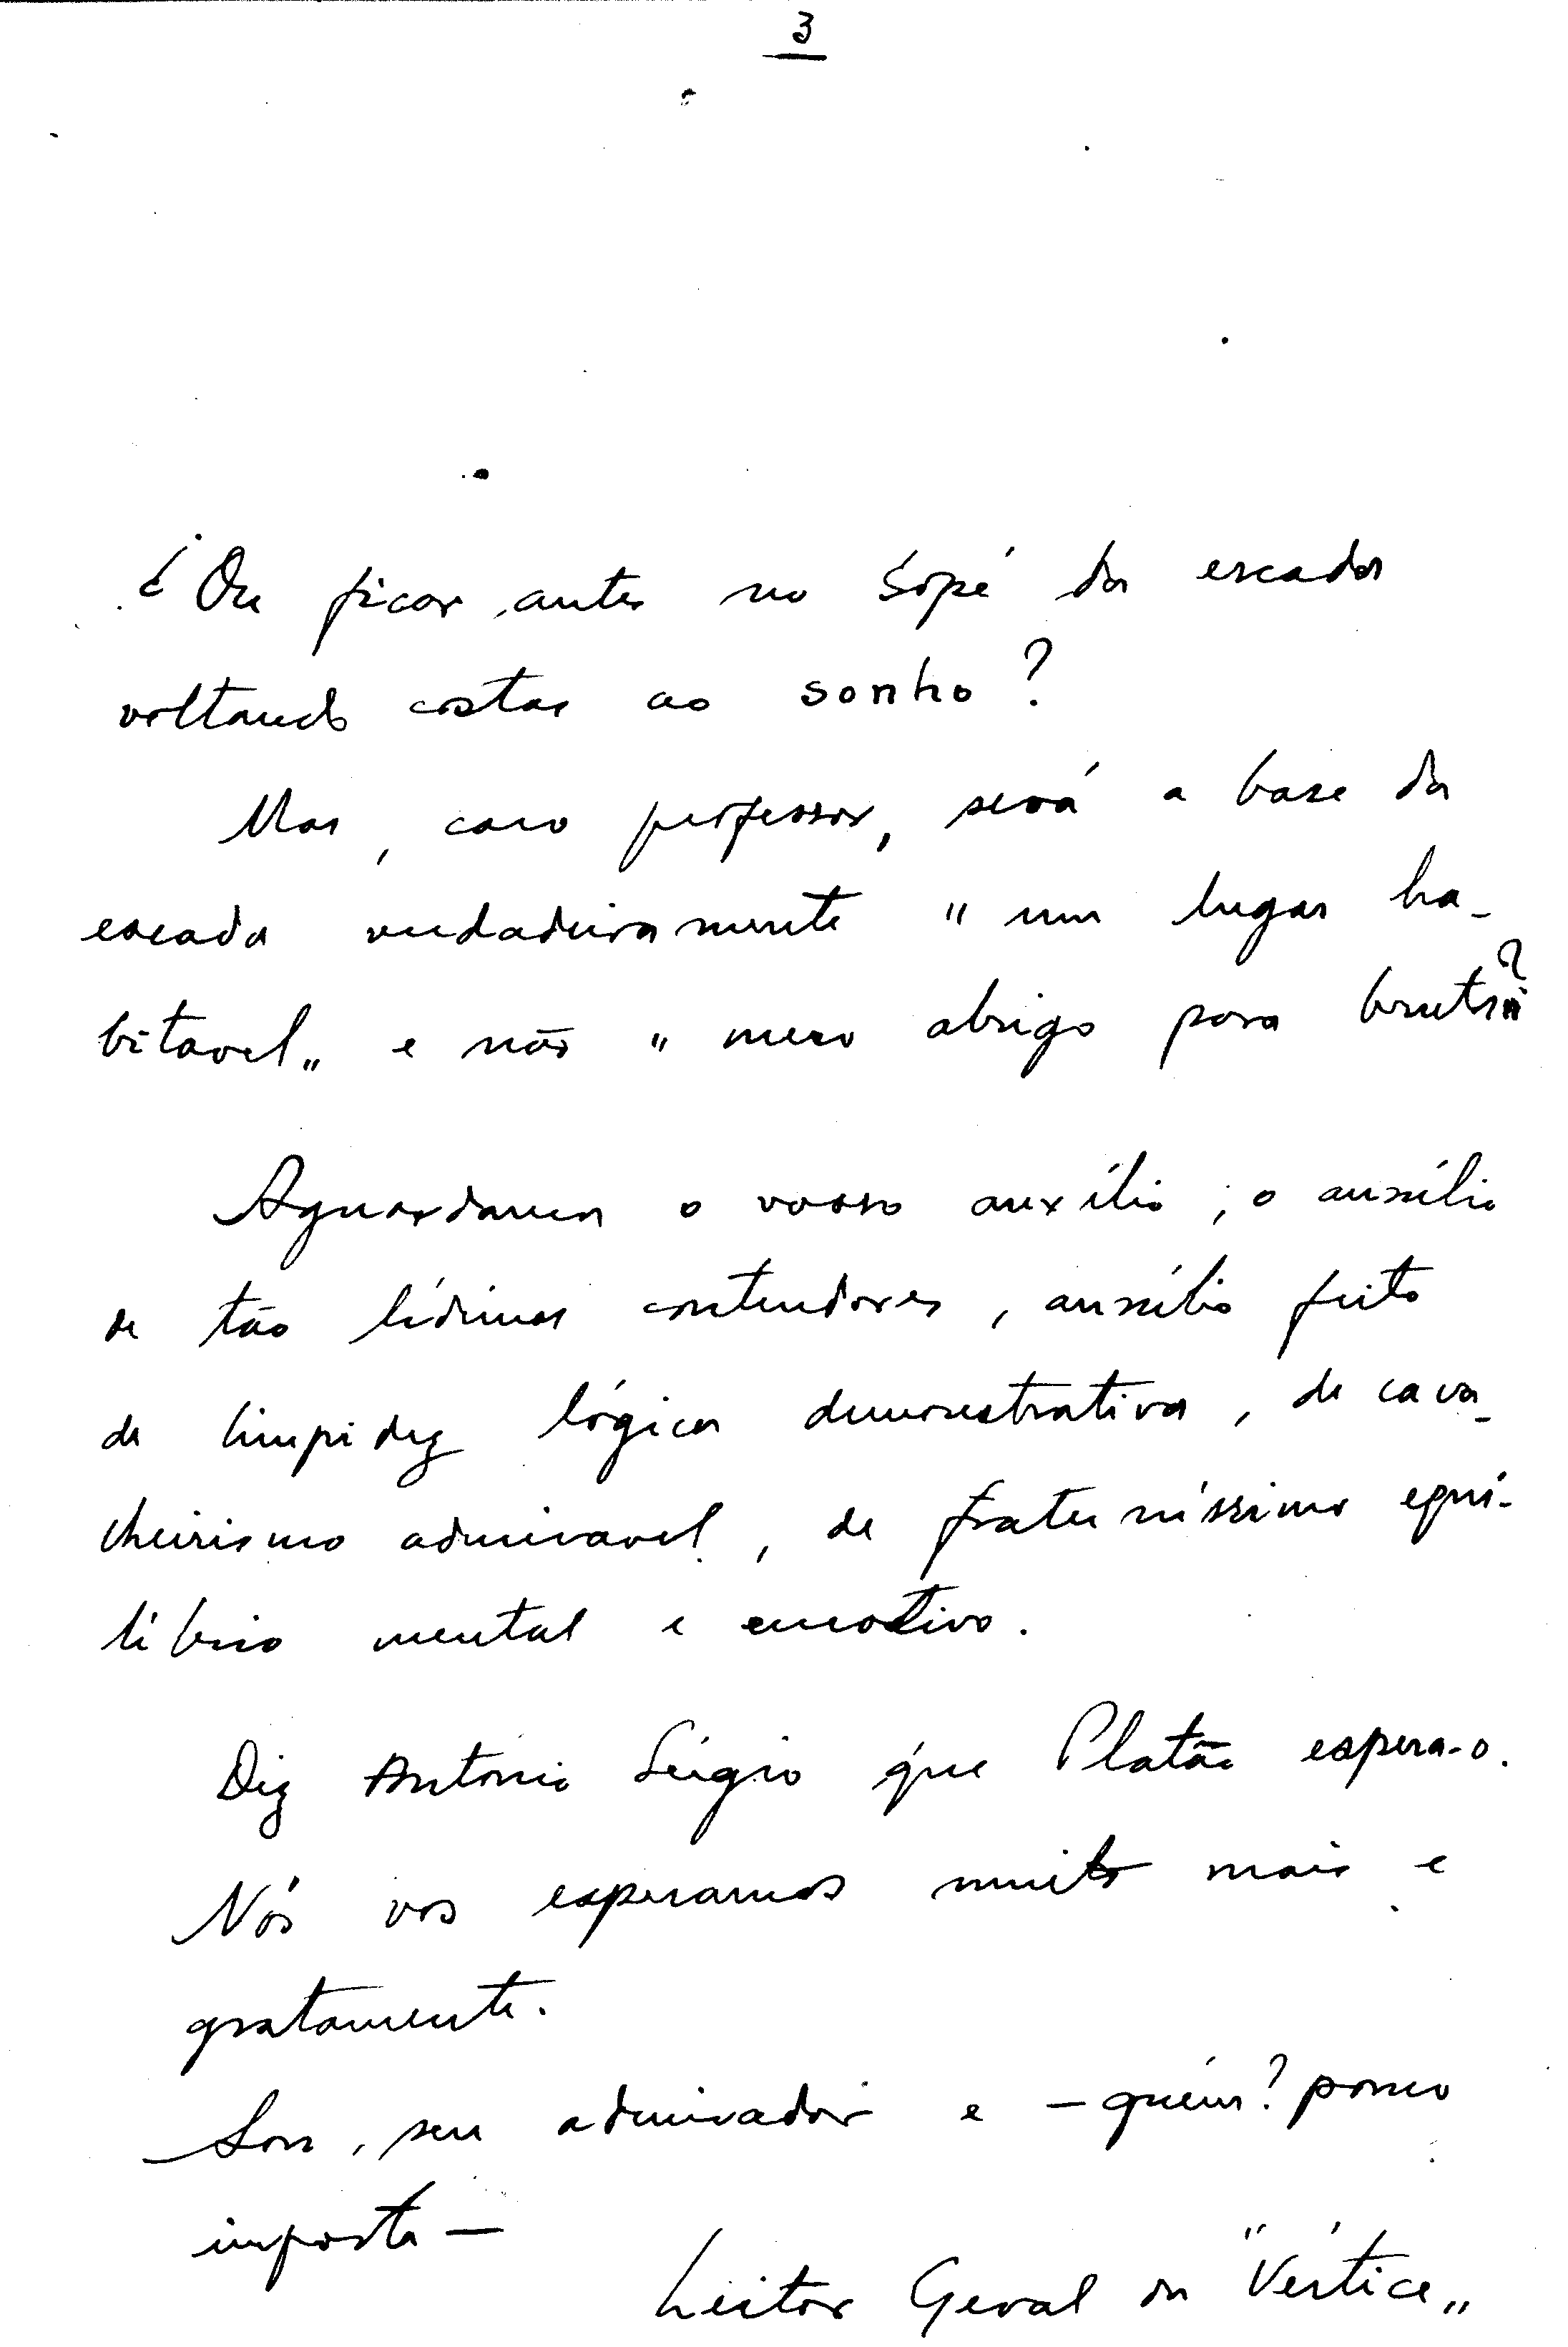 3
¿Ou ficar antes no sopé da escada
voltando costas ao sonho?
Mas, caro professor, será a base da
escada verdadeiramente "um lugar ha-
bitavel„ e não "mero abrigo para brutos"?
Aguardamos o vosso auxílio; o auxílio
de tão lídimos contendores, auxílio feito
de limpidez lógica demonstrativa, de cava-
lheirismo admiravel, de fraterníssimo equi-
líbrio mental e emotivo.
Diz António Sérgio que Platão espera-o.
Nós vos esperamos muito mais e
gratamente.
Sou, seu admirador e – quém? pouco
importa –
Leitor Geral da "Vértice„